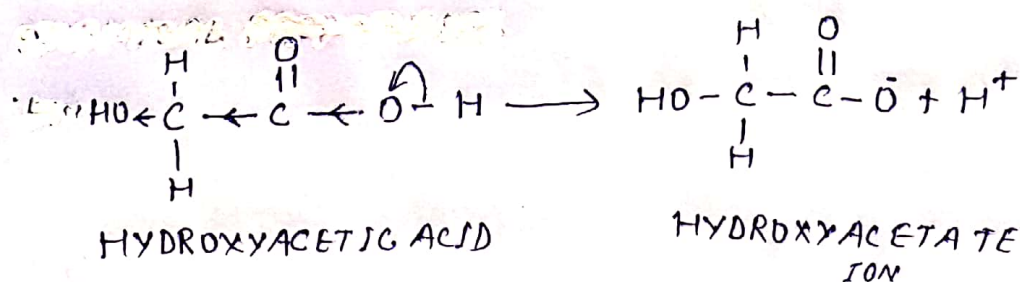 H H O
O || | ||
HO ← C ← C ← O – H → HO – C – C – Ō + H⁺
| |
H H
HYDROXYACETIC ACID HYDROXYACETATE
ION